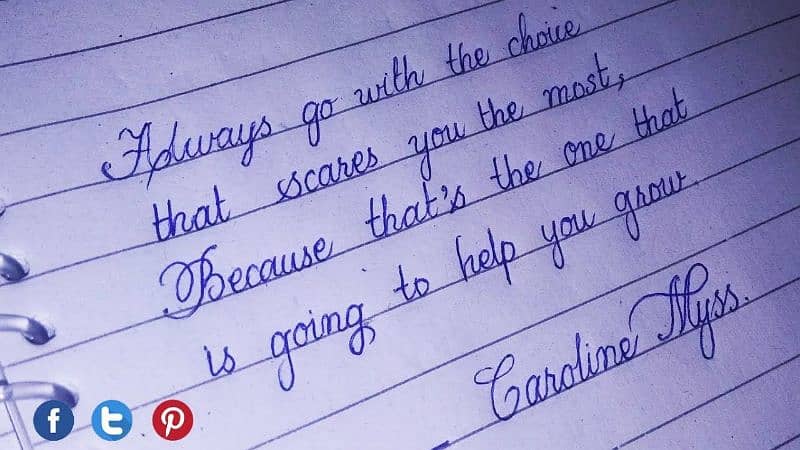 Always go with the choice
that scares you the most,
Because that's the one that
is going to help you grow
Caroline Myss.